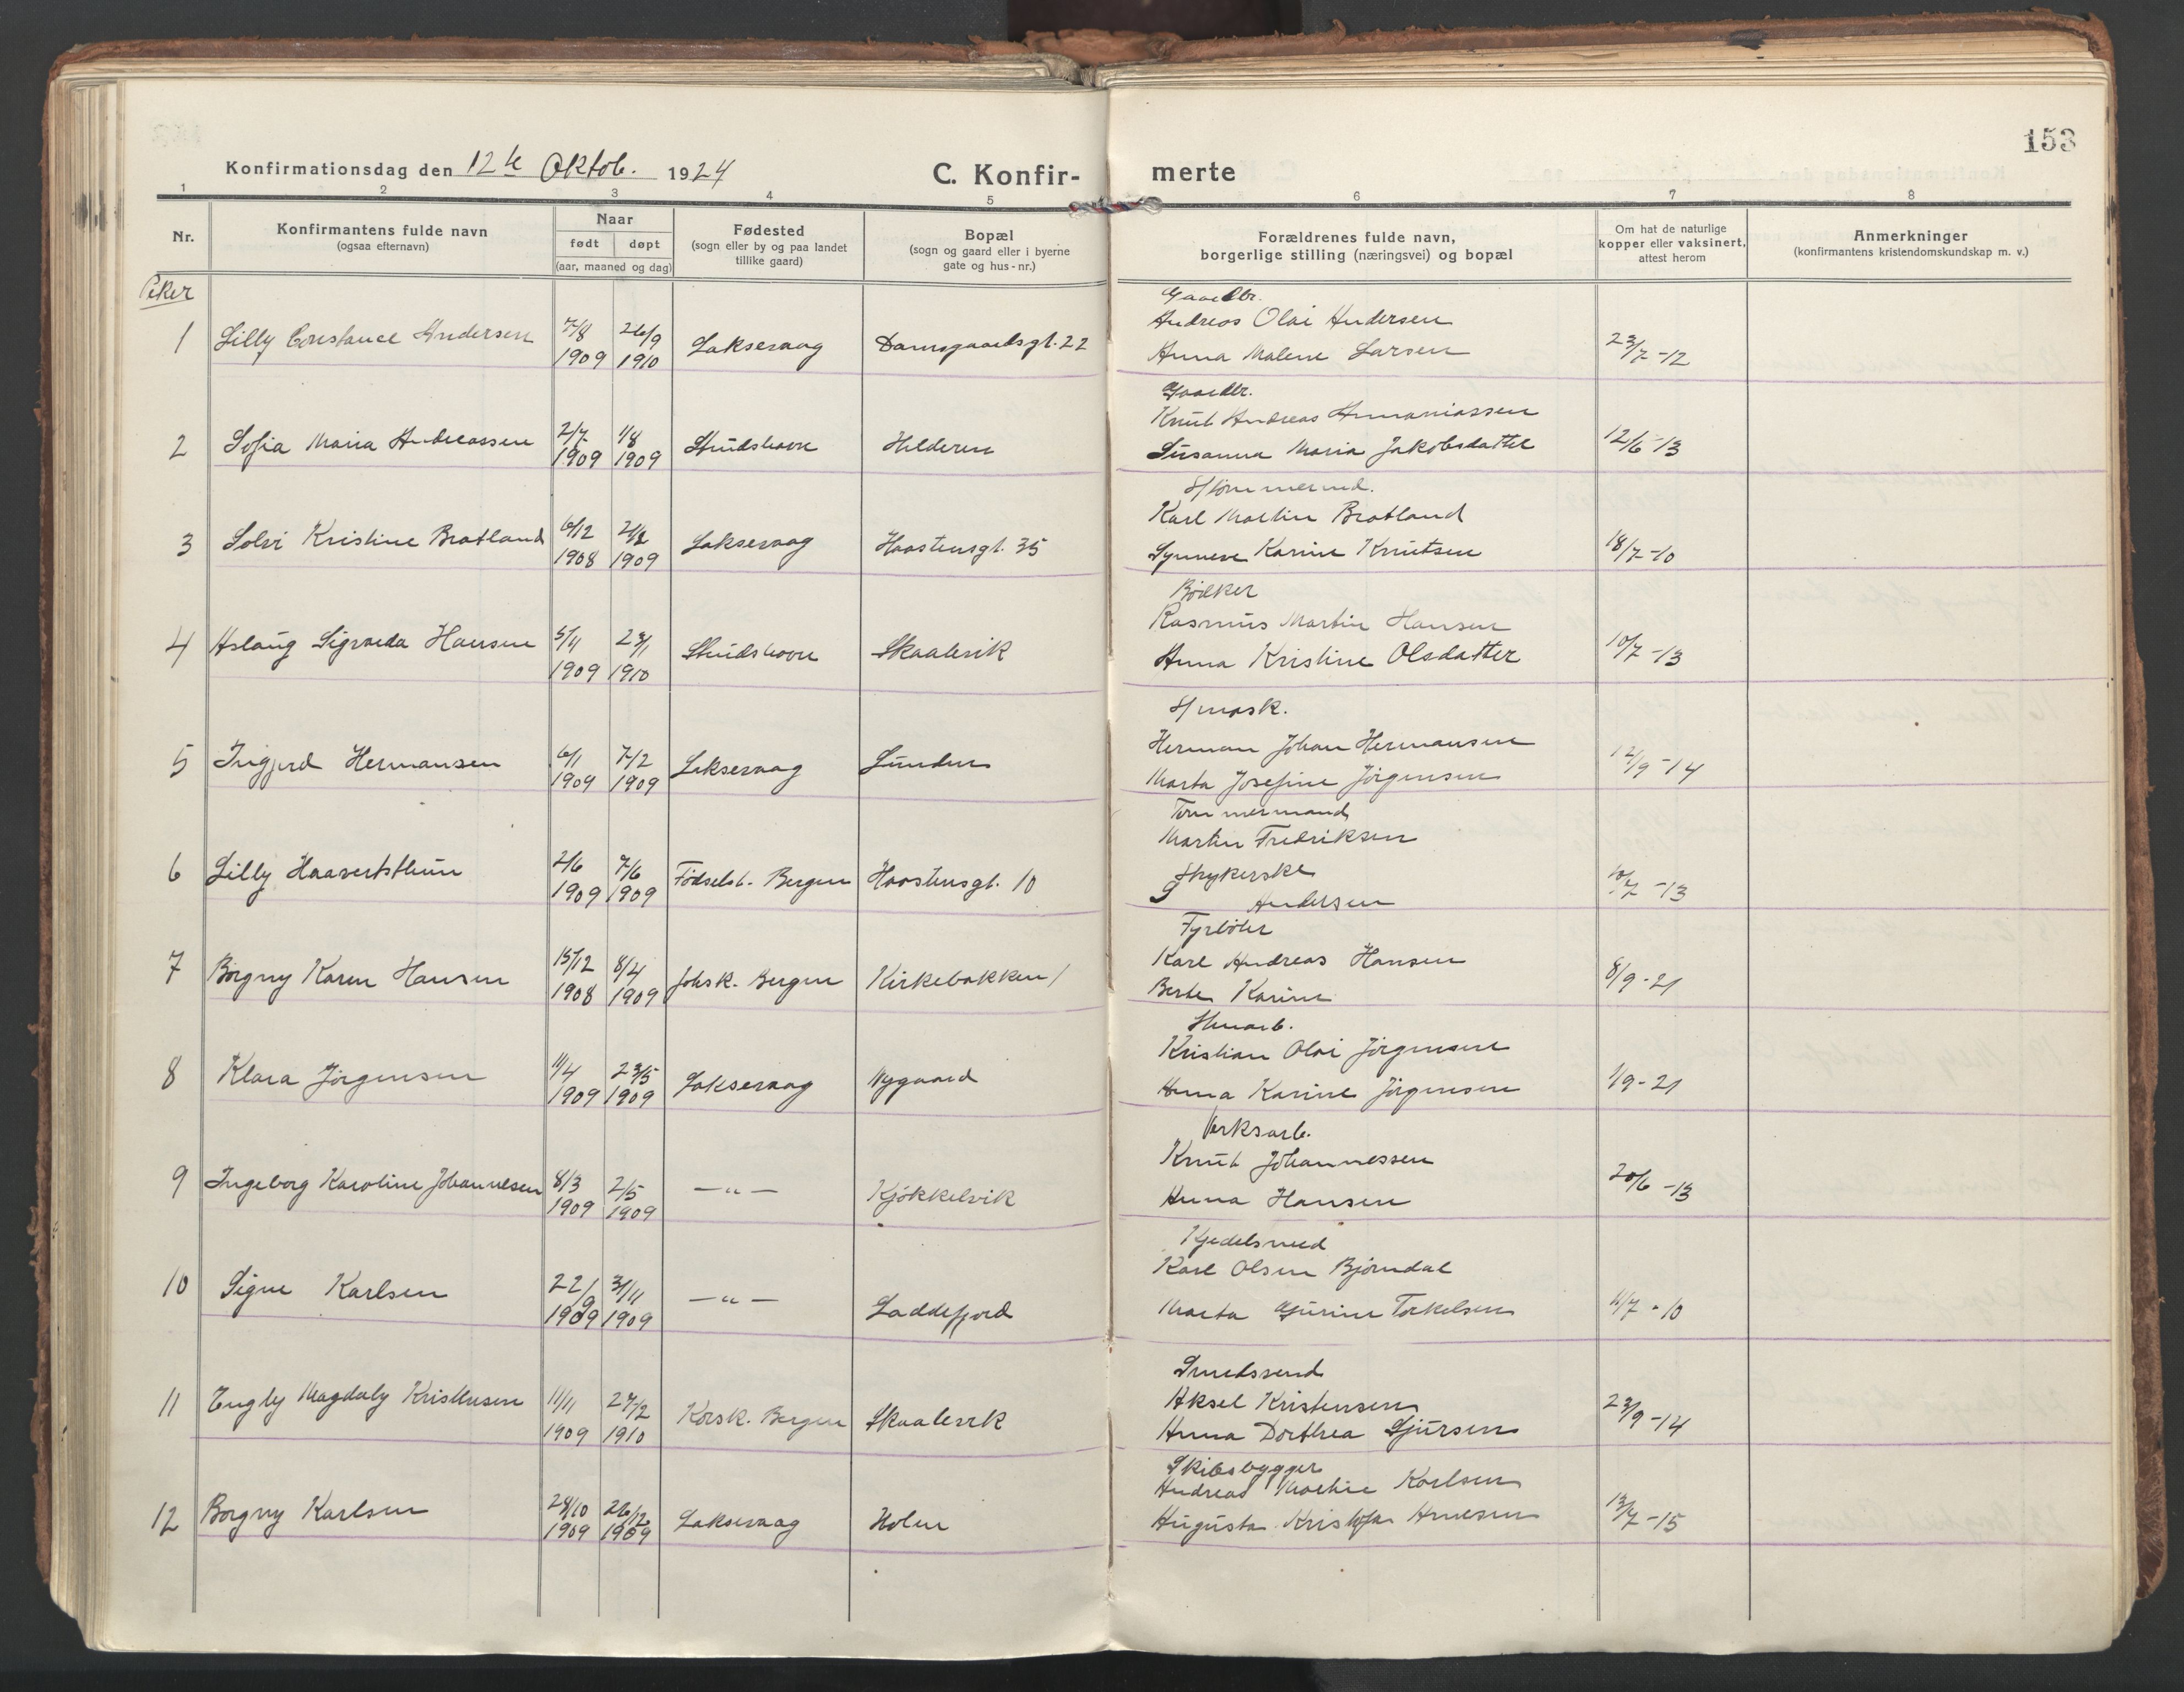 153
Konfirmationsdag den 12te Oktob. 1924
C. Konfir- merte
1 2 3 4 5 6 7 8
Nr.
Konfirmantens fulde navn
(ogsaa efternavn)
Naar
født døpt
(aar, maaned og dag)
Fødested
(sogn eller by og paa landet
tillike gaard)
Bopæl
(sogn og gaard eller i byerne
gate og hus-nr.)
Forældrenes fulde navn,
borgerlige stilling (næringsvei) og bopæl
Om hat de naturlige
kopper eller vaksinert,
attest herom
Anmerkninger
(konfirmantens kristendomskundskap m. v.)
Piker
Gaardbr.
Andreas Olai Andersen
1 Lilly Constance Andersen 7/8 1909 26/9 1910 Laksevaag Damsgaardsgt. 22
Anna Malene Larsen 23/7 -12
Gaardbr.
Knut Andreas Ananiassen
2 Sofia Maria Andreassen 2/7 1909 1/8 1909 Studshavn Hilderen
Susanna Maria Jakobsdatter 12/6 -13
Karl Martin Bratland
3 Solvi Kristine Bratland 6/12 1908 21/2 1909 Laksevaag Haastensgt. 35
Synneve Karine Knutsen 18/7 -10
Bødker
Rasmus Martin Hansen
4 Aslaug Sigvarda Hansen 5/11 1909 23/1 1910 Studshavn Skaalevik
Anna Kristine Olsdatter 10/7 -13
S/mask.
Herman Johan Hermansen
5 Ingjerd Hermansen 6/1 1909 7/2 1909 Laksevaag Lunden
Marta Josefine Jørgensen 12/9 -14
Tømmermand
Martin Fredriksen
6 Lilly Haavertsthun 2/6 1909 7/6 1909 Fødselst. Bergen Haastensgt. 10
Strykerske
S Andersen 10/7 -13
Fyrbøter
Karl Andreas Hansen
7 Borgny Karen Hansen 15/12 1908 8/4 1909 Johsk. Bergen Kirkebakken 1
Berte Karine 8/9 -21
Kristian Olai Jørgensen
8 Klara Jørgensen 11/4 1909 23/5 1909 Laksevaag Nygaard
Anna Karine Jørgensen 1/9 -21
Verksarb.
Knut Johannessen
9 Ingeborg Karoline Johannesen 8/3 1909 2/5 1909 — " — Kjøkkelvik
Anna Hansen 20/6 -13
Kjedelsmed
Karl Olsen Bjørndal
10 Signe Karlsen 22/9 1909 3/11 1909 — " — Laddefjord
Marta Gurine Torkelsen 11/7 -10
Smedsvend
Aksel Kristensen
11 Engly Magdaly Kristensen 11/11 1909 27/2 1910 Korsk. Bergen Skaalevik
Anna Dorthea Sjursen 23/9 -14
Skibsbygger
Andreas Martin Karlsen
12 Borgny Karlsen 28/10 1909 26/12 1909 Laksevaag Holen
Augusta Kristofa Arnesen 13/7 -15